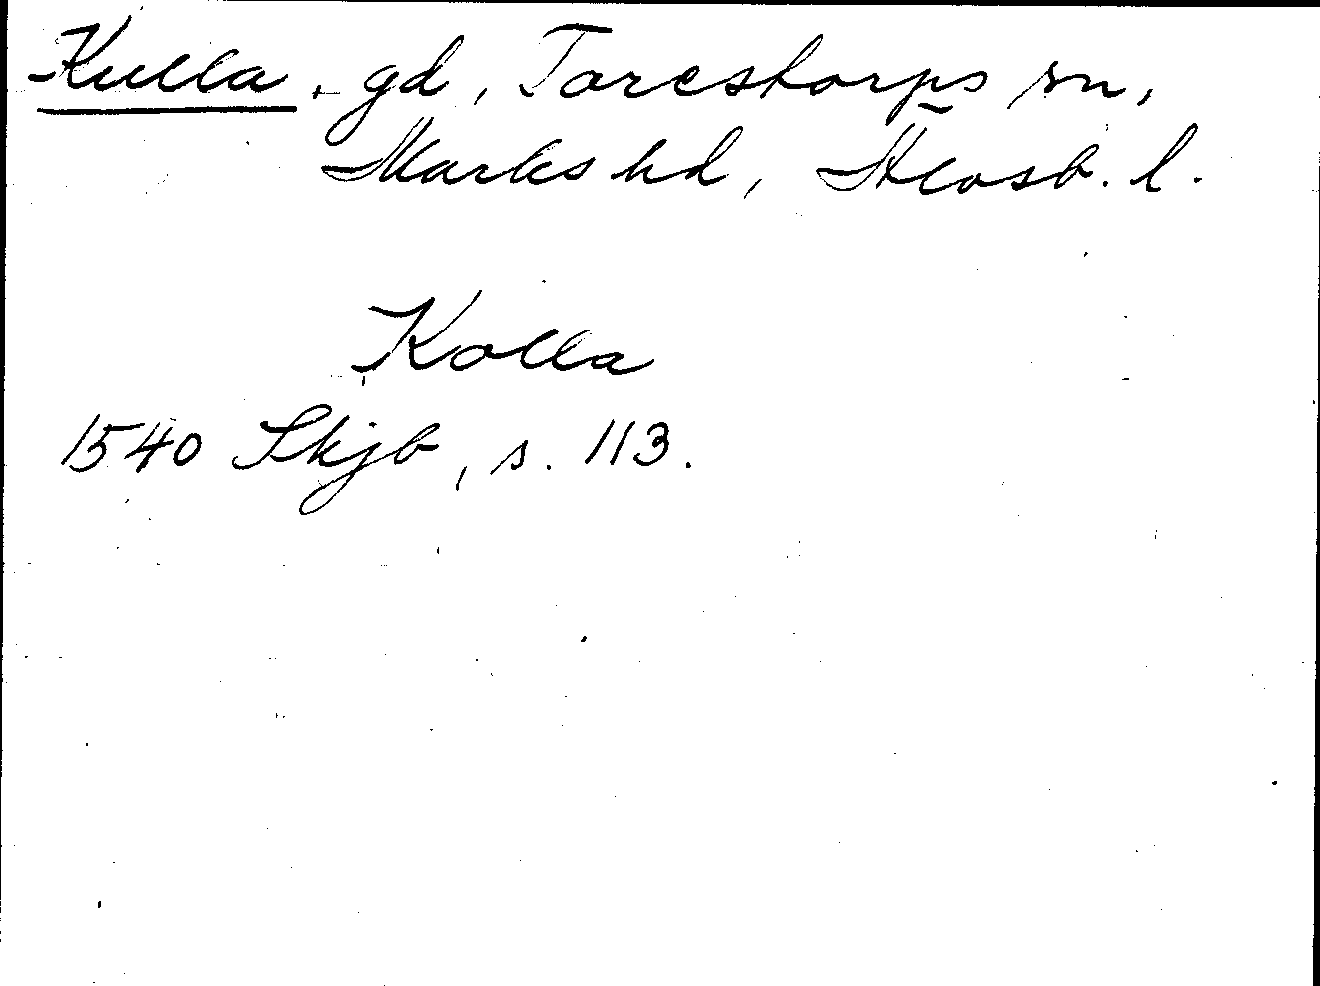 Kulla, gd, Torestorps sn,
Marks hd, Älvsb. l.
Kolla
1540 Skjb, s. 113.